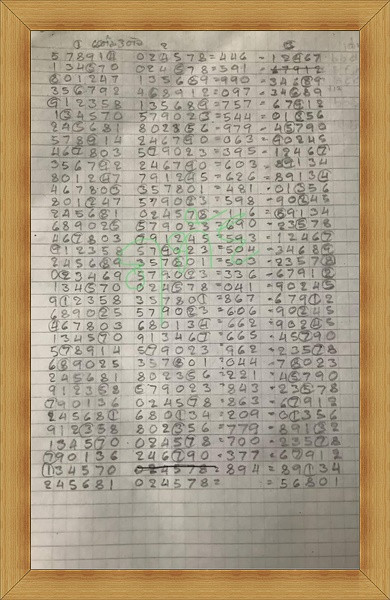 578914 024578=446 -12467
134570 024578=591 -67912
801247 135669=990 -34689
356792 468912=097 -34689
912358 135689=757 -67912
134570 579023=544 -01356
245681 802356=979 -45790
578914 246790=063 -90245
467803 579023=395 -12467
356792 246790=603 -89134
801247 791245=626 -89134
467803 357801=481 -01356
801247 579023=598 -90245
245681 024578=
689025 579023=690 -23578
467803 791245=593 -12467
912358 579023=504 -34689
245689 357801= -23578
023469 579023=336 -67912
134570 024578=041 -90245
912358 357801=867 -67912
689025 579023=606 -90245
467803 680134=662 -90245
134570 913467=665 -45790
578914 579023=962 -23578
689025 357801=044 -78023
245681 802356=221 -45790
912358 579023=843 -23578
790136 024578=863 -67912
245681 680134=209 -01356
912358 802356=779 -89132
134570 024578=700 -23578
790136 246790=377 -67912
134570 024578=894 =89134
245681 024578= =56801